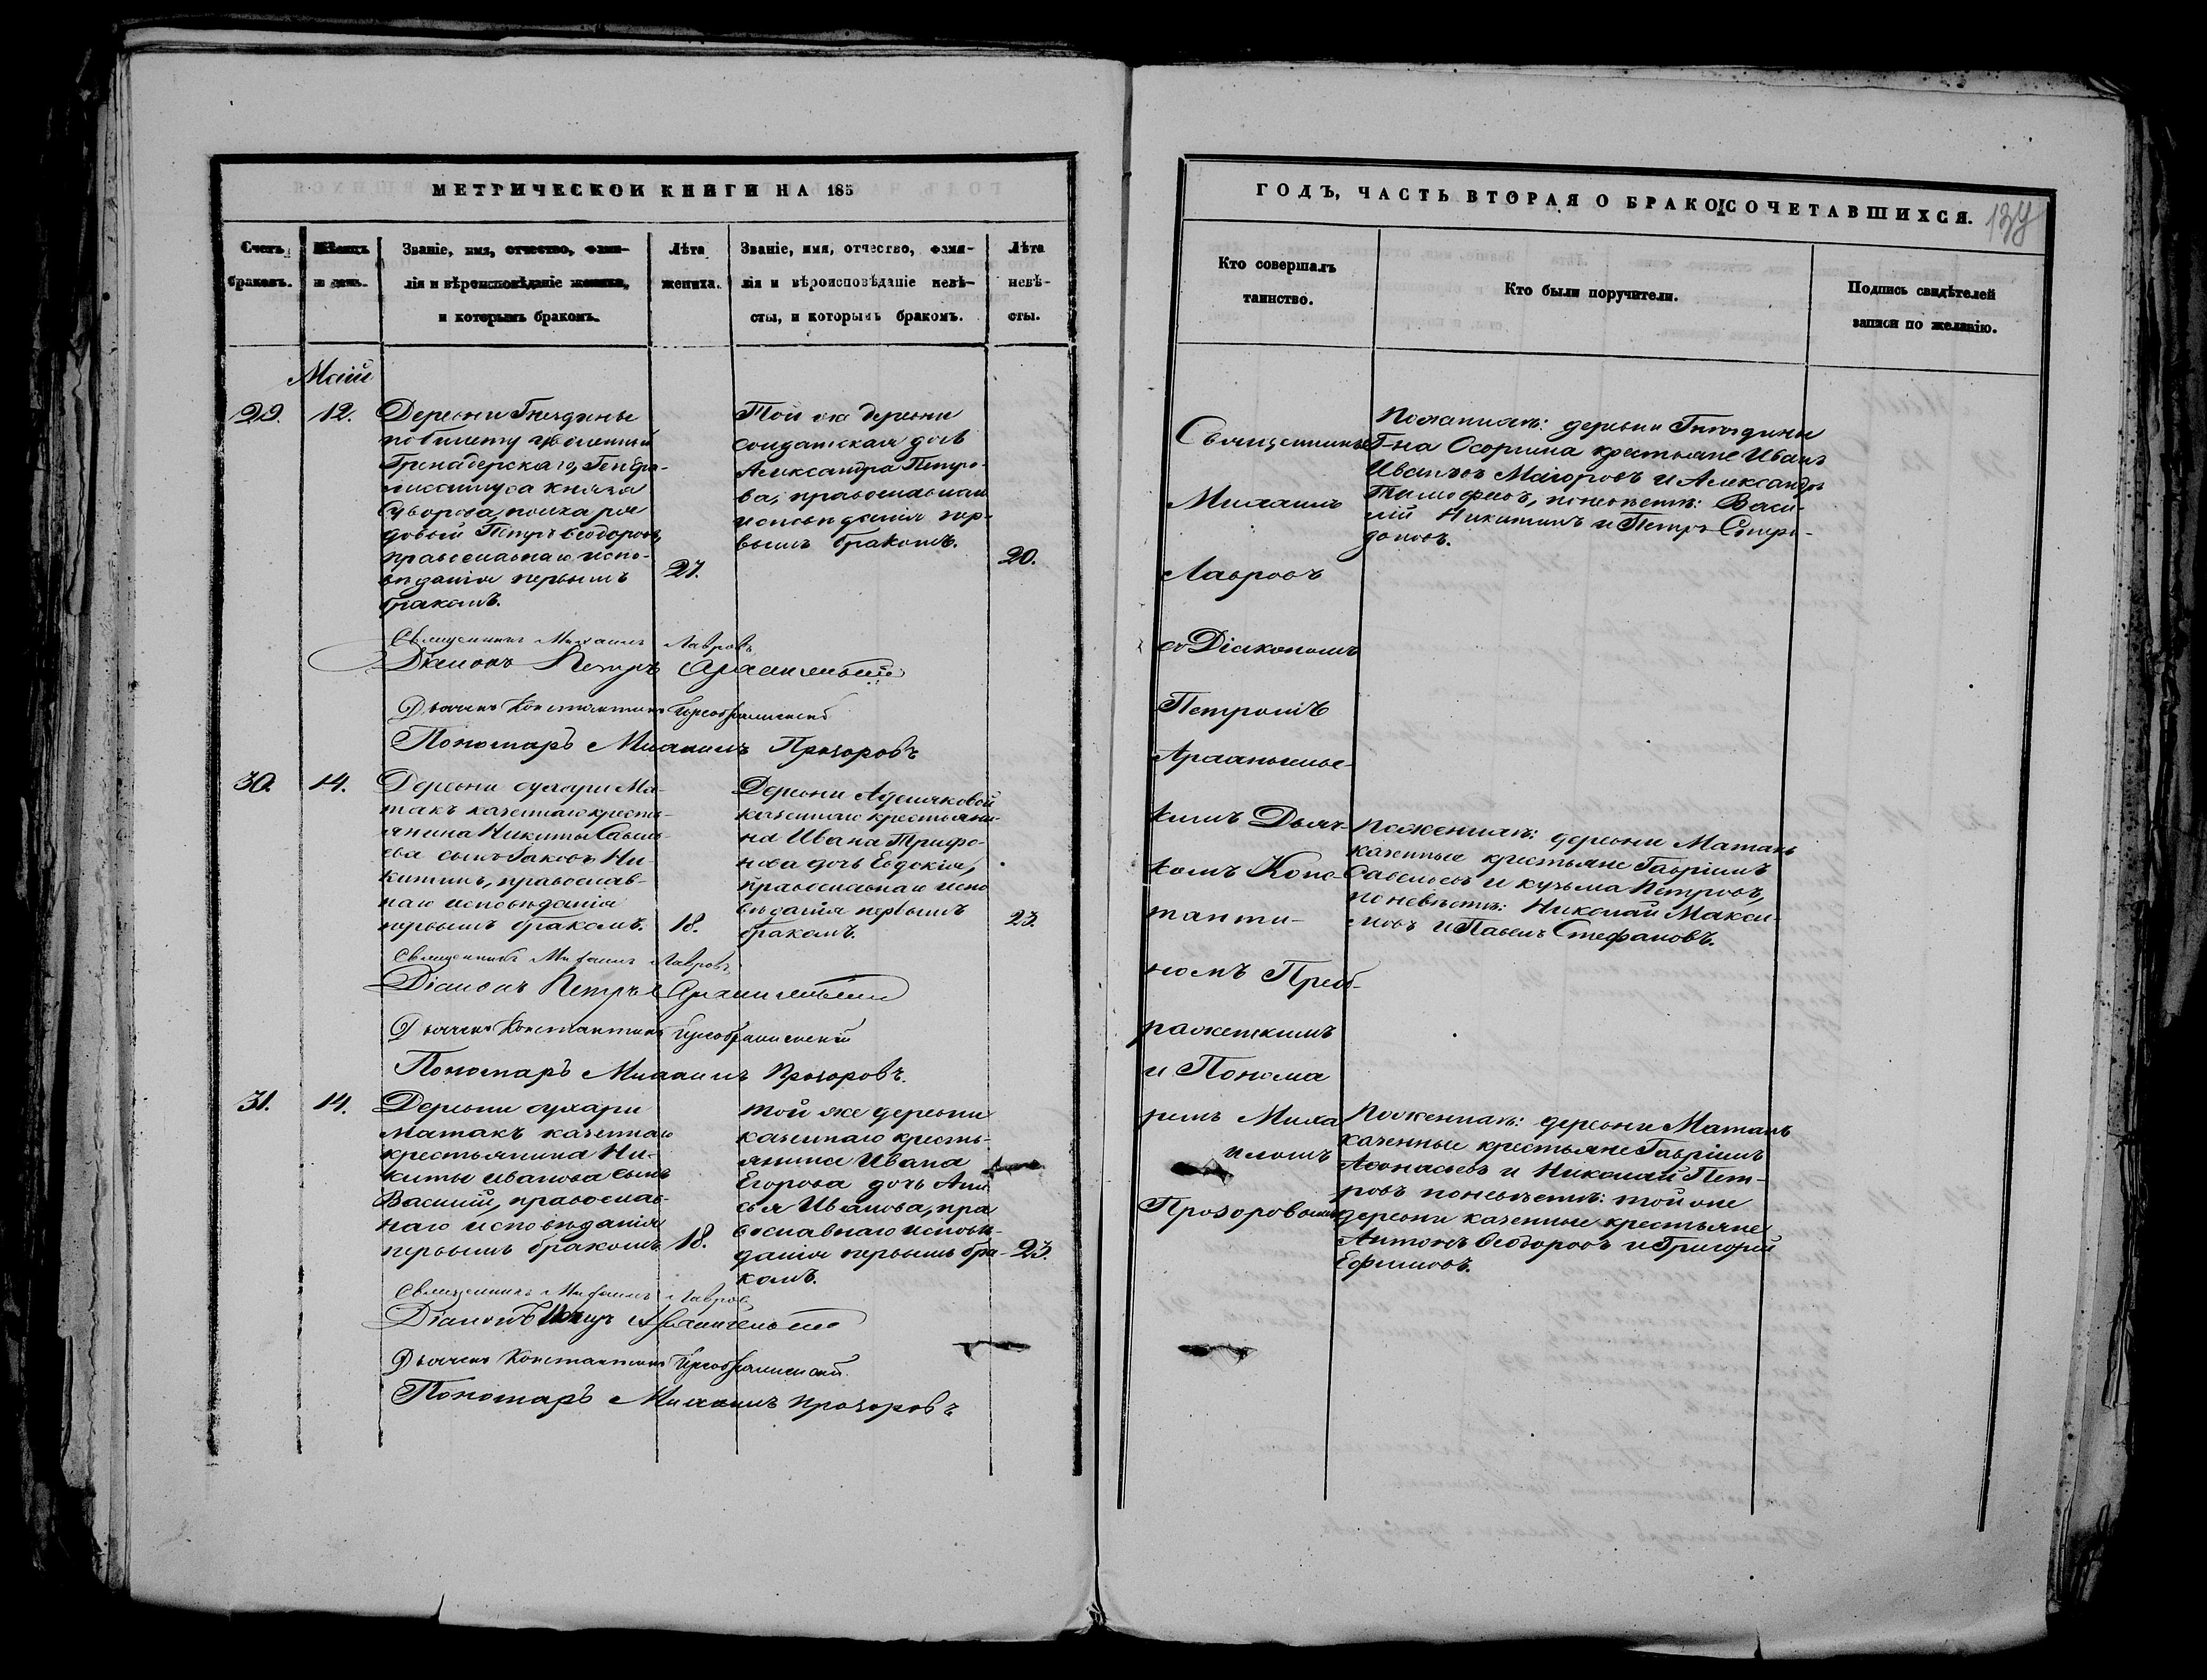 МЕТРИЧЕСКОЙ КНИГИ НА 185
Счетъ
браковъ.
Мѣсяцъ
и день.
Званіе, имя, отчество, фами-
лія и вѣроисповѣданіе жениха,
и которымъ бракомъ.
Лѣта
жениха.
Званіе, имя, отчество, фами-
лія и вѣроисповѣданіе невѣ-
сты, и которымъ бракомъ.
Лѣта
невѣ-
сты.
Май
29.
12.
Деревни Гнездины
по билету уволенный
Гренадерскаго, Генера-
лиссимуса Князя
Суворова, полка ря
довый Петръ Ѳеодоровъ,
православнаго испо-
вѣданія первымъ
бракомъ.
27.
Той же деревни
солдатская дочь
Александра Петро-
ва, православнаго
исповѣданія пер-
вымъ бракомъ.
20.
Священникъ Михаилъ Лавровъ
Діаконъ Петръ Архангельскій
Дьячекъ Константинъ Преображенскій
Пономарь Михаилъ Прозоровъ
30
14.
Деревни сухари Ма-
такъ казеннаго кресть-
янина Никиты Савель
ева сынъ Іаковъ Ни-
китинъ, православ-
наго исповѣданія
первымъ бракомъ.
18.
Деревни
казеннаго крестьяни-
на Ивана Трифо-
нова дочь Евдокія,
православнаго испо
вѣданія первымъ
бракомъ.
23.
Священникъ Михаилъ Лавровъ
Діаконъ Петръ Архангельскій
Дьячекъ Константинъ Преображенскій
Пономарь Михаилъ Прозоровъ.
31.
14.
Деревни сухари
Матакъ казеннаго
крестьянина Ни-
киты Иванова сынъ
Василій, православ-
наго исповѣданія
первымъ бракомъ
18.
Той же деревни
казеннаго кресть-
янина Ивана
Егорова дочь Ани
сья Иванова, пра
вославнаго исповѣ-
данія первымъ бра-
комъ.
23.
Священникъ Михаилъ Лавровъ
Діаконъ Петръ Архангельскій
Дьячекъ Константинъ Преображенскій.
Пономарь Михаилъ Прозоровъ
ГОДЪ, ЧАСТЬ ВТОРАЯ О БРАКОСОЧЕТАВШИХСЯ.
Кто совершалъ
таинство.
Кто были поручители.
Подпись свидѣтелей
записи по желанію.
Священникъ
Михаилъ
Лавровъ
съ Діакономъ
Петромъ
Архангельс-
кимъ Дьяч-
комъ Конс-
танти-
номъ Преоб-
раженскимъ
и Понома
ремъ Миха
иломъ
Прозоровымъ
По женихѣ: деревни Гнездины
Г-на Осоргина крестьяне Иванъ
Ивановъ Маіоровъ и Александръ
Тимофеевъ, по невѣстѣ: Васи-
лій Никитинъ и Петръ Спири-
доновъ.
По женихѣ: деревни Матакъ
казенные крестьяне Гавріилъ
Савельевъ и Кузьма Петровъ,
по невѣстѣ: Николай Макси-
мовъ и Павелъ Стефановъ.
По женихѣ: деревни Матакъ
казенные крестьяне Гавріилъ
Аѳонасьевъ и Николай Пет-
ровъ по невѣстѣ: той же
деревни казенные крестьяне
Антонъ Ѳеодоровъ и Григорій
Ефимовъ.